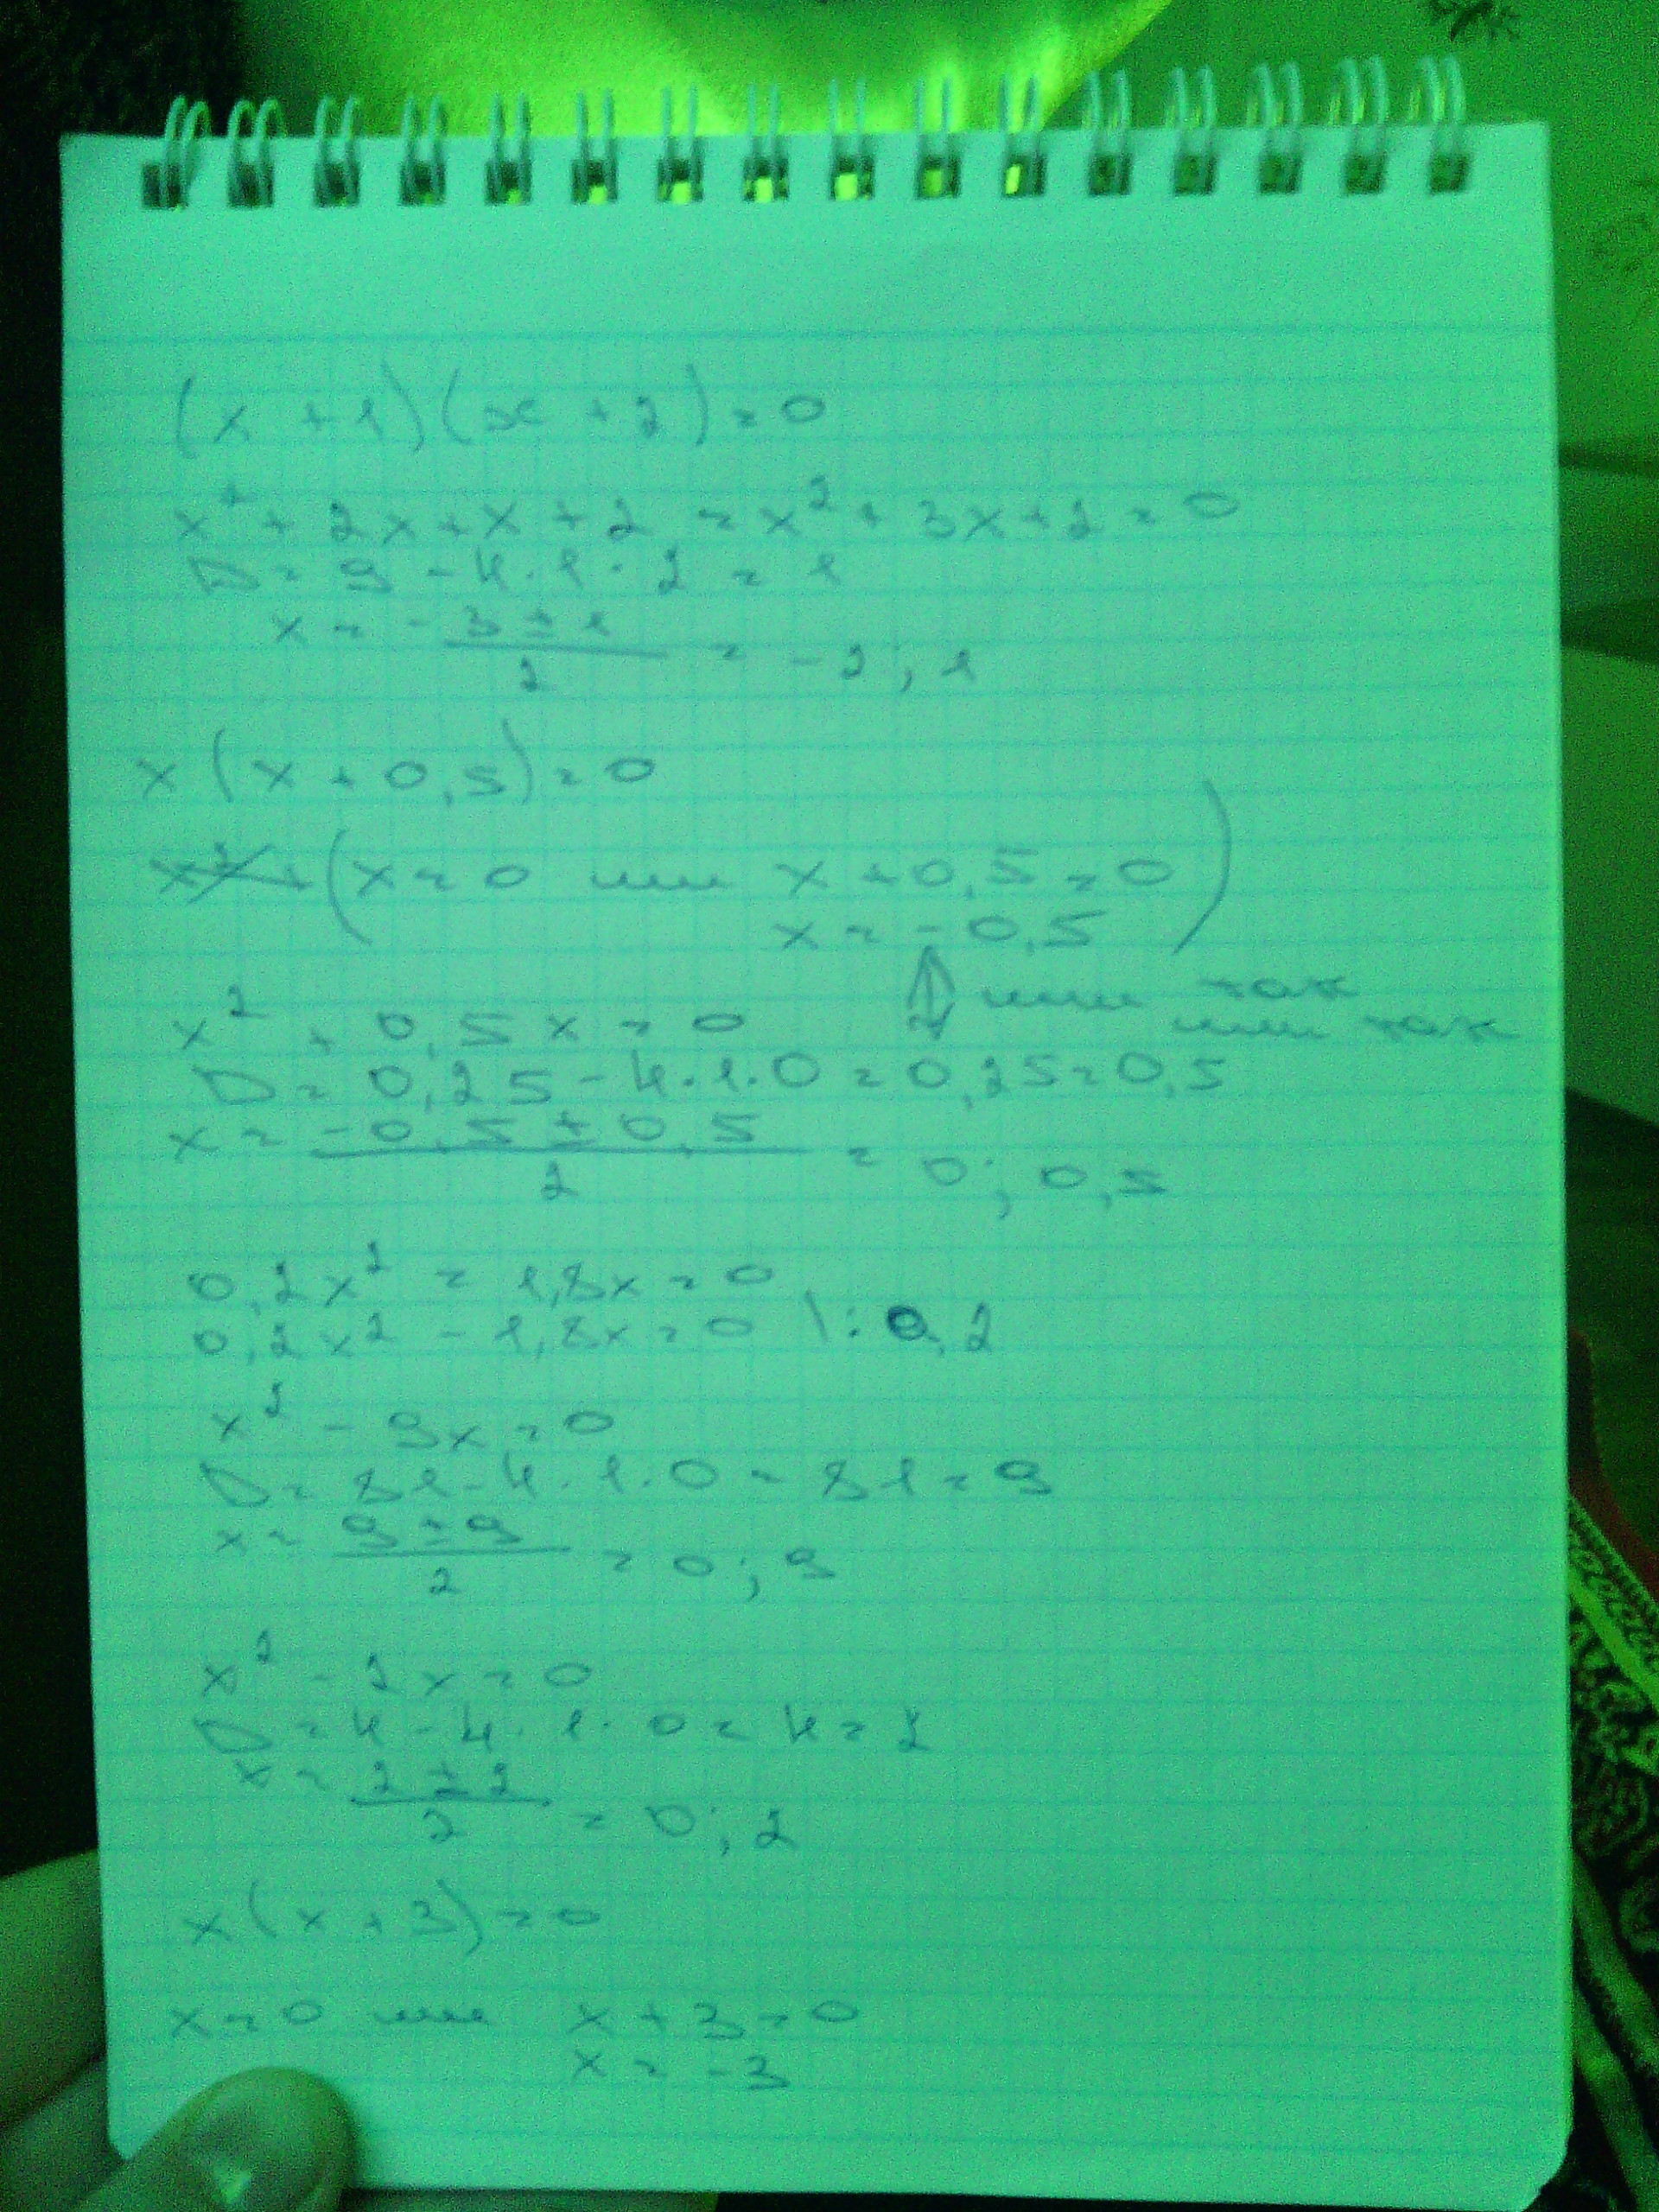 (x + 1)(x + 2) = 0
x² + 2x + x + 2 = x² + 3x + 2 = 0
D = 9 - 4 · 1 · 2 = 1
x = -3 ± 1 / 2 = -2; 1
x(x + 0,5) = 0
(x = 0 или x + 0,5 = 0)
x = -0,5
или так
или так
x² + 0,5x = 0
D = 0,25 - 4 · 1 · 0 = 0,25 = 0,5
x = -0,5 ± 0,5 / 2 = 0; 0,5
0,2x² = 1,8x = 0
0,2x² - 1,8x = 0 \: 0,2
x² - 9x = 0
D = 81 - 4 · 1 · 0 = 81 = 9
x = 9 ± 9 / 2 = 0; 9
x² - 2x = 0
D = 4 - 4 · 1 · 0 = 4 = 2
x = 2 ± 2 / 2 = 0; 2
x(x + 3) = 0
x = 0 или x + 3 = 0
x = -3